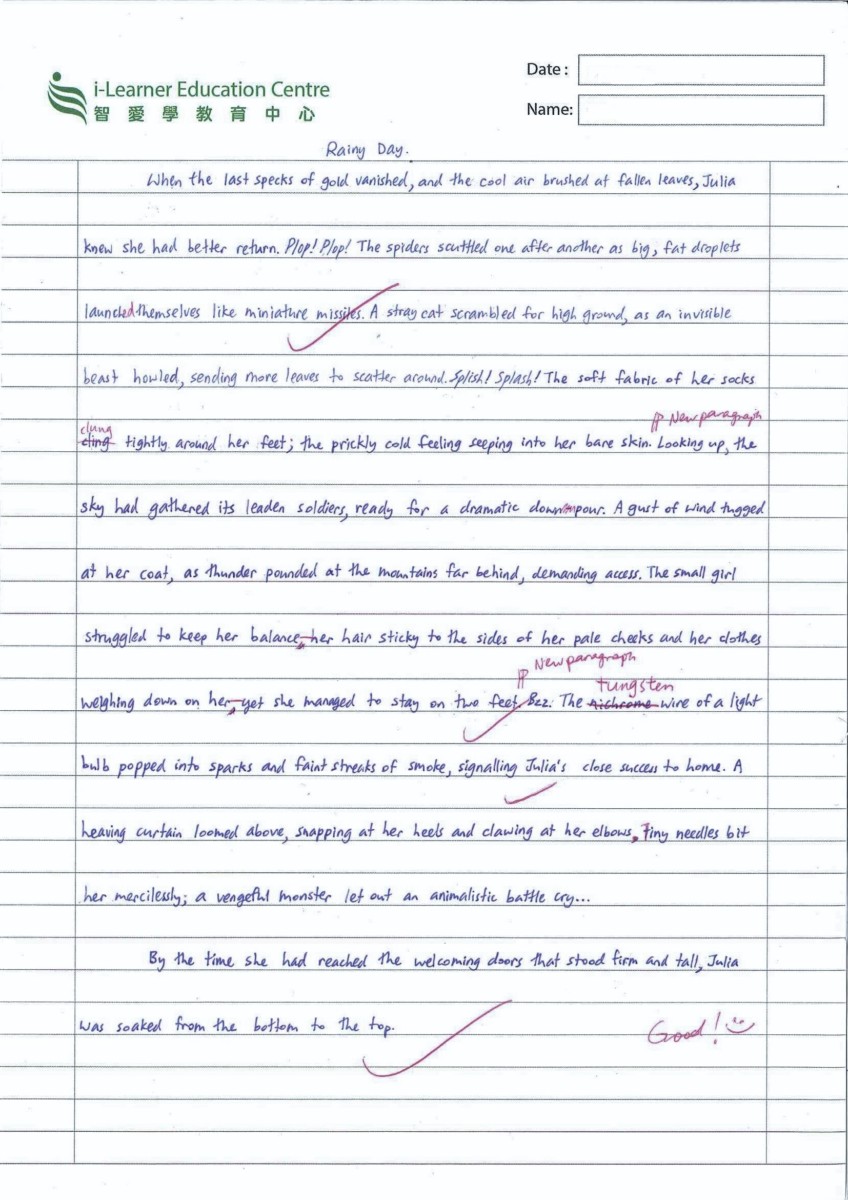 i-Learner Education Centre
智愛學教育中心
Date :
Name:
Rainy Day.
When the last specks of gold vanished, and the cool air brushed at fallen leaves, Julia
knew she had better return. Plop! Plop! The spiders scuttled one after another as big, fat droplets
launched themselves like miniature missiles. A stray cat scrambled for high ground, as an invisible
beast howled, sending more leaves to scatter around. Splish! Splash! The soft fabric of her socks
clung New paragraph
cling tightly around her feet; the prickly cold feeling seeping into her bare skin. Looking up, the
sky had gathered its leaden soldiers, ready for a dramatic downpour. A gust of wind tugged
at her coat, as thunder pounded at the mountains far behind, demanding access. The small girl
struggled to keep her balance, her hair sticky to the sides of her pale cheeks and her clothes
New paragraph
tungsten
weighing down on her, yet she managed to stay on two feet. Bzz. The Nichrome wire of a light
bulb popped into sparks and faint streaks of smoke, signalling Julia's close success to home. A
heaving curtain loomed above, snapping at her heels and clawing at her elbows. Tiny needles bit
her mercilessly; a vengeful monster let out an animalistic battle cry...
By the time she had reached the welcoming doors that stood firm and tall, Julia
was soaked from the bottom to the top.
Good!